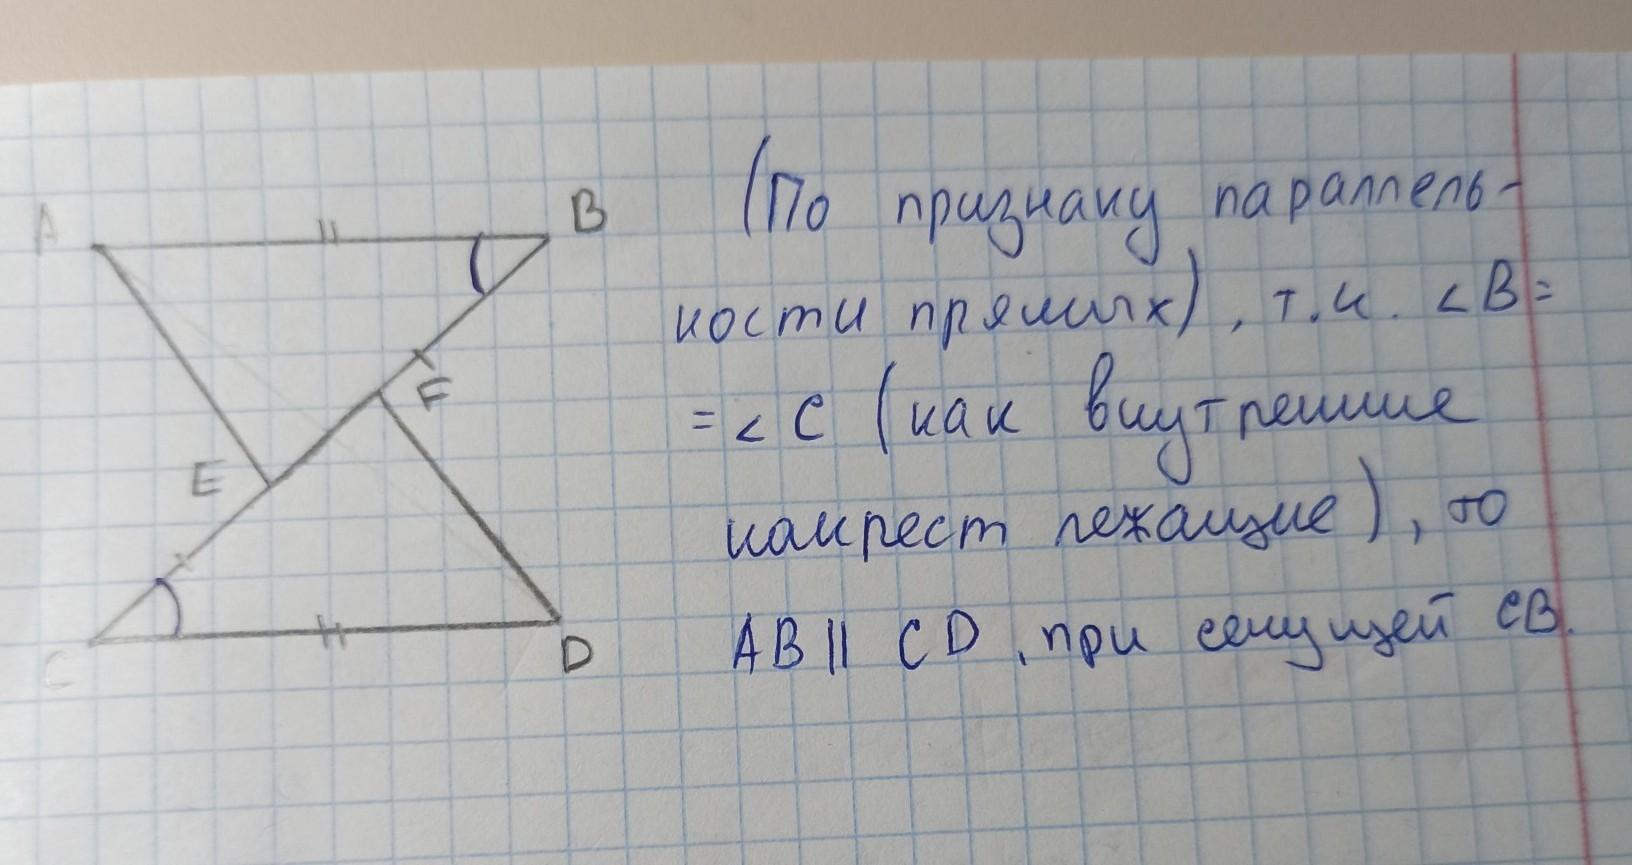 A
B
(По признаку параллель-
ности прямых), т.к. ∠B=
F
= ∠C (как внутренние
E
накрест лежащие), то
AB || CD, при секущей CB.
C
D